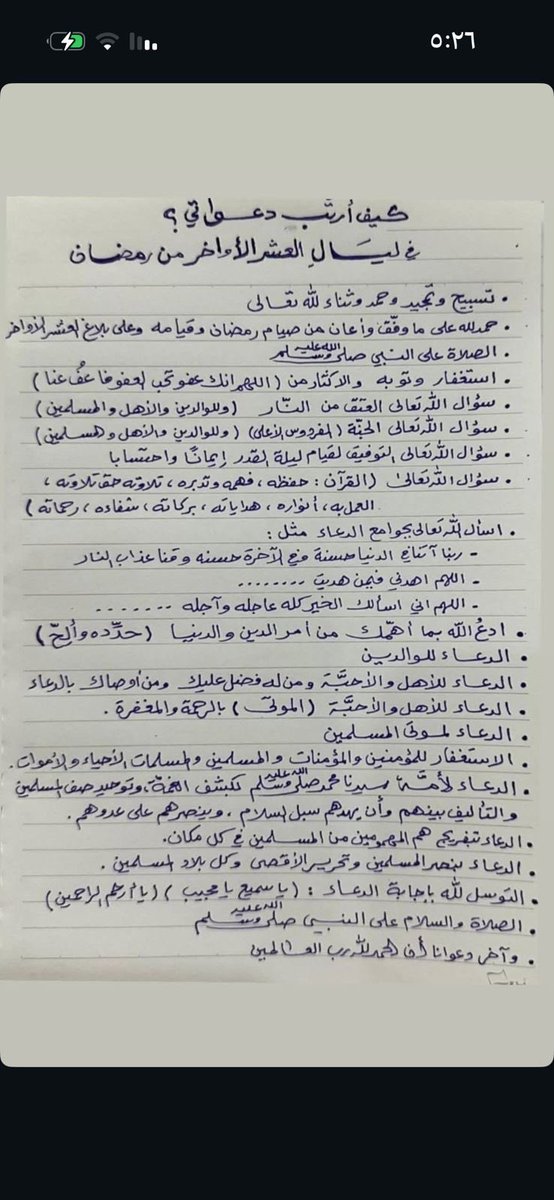 ٥:٢٦
كيف أرتّب دعواتي ؟
في ليَالِ العشر الأواخر من رمضان
• تسبيح وتمجيد وحمد وثناء لله تعالى
• حمد لله على ما وفّق وأعان من صيام رمضان وقيامه وعلى بلاغ العشر الأواخر
• الصلاة على النبي صلى الله عليه وسلم
• استغفار وتوبه والاكثار من (اللهم انك عفو تحب العفو فاعفُ عنا)
• سؤال الله تعالى العتق من النّار (وللوالدين والأهل والمسلمين)
• سؤال الله تعالى الجنّة (الفردوس الأعلى) (وللوالدين والأهل والمسلمين)
• سؤال الله تعالى التوفيق لقيام ليلة القدر إيمانًا واحتسابا
• سؤال الله تعالى (القرآن : حفظه، فهمه وتدبره، تلاوته حق تلاوته،
العمل به، أنواره، هداياته، بركاته، شفاءه، رحماته)
• اسأل الله تعالى بجوامع الدعاء مثل :
- ربنا آتنا في الدنيا حسنة وفي الآخرة حسنه وقنا عذاب النار
- اللهم اهدني فيمن هديت ........
- اللهم اني اسألك الخير كله عاجله وآجله .......
• ادعُ الله بما أهمّك من أمر الدين والدنيا (حدّده وألحّ)
• الدعاء للوالدين
• الدعاء للأهل والأحبَّة ومن له فضل عليك ومن أوصاك بالدعاء
• الدعاء للأهل والأحبَّة (الموتى) بالرحمة والمغفرة .
• الدعاء لموتى المسلمين
• الاستغفار للمؤمنين والمؤمنات والمسلمين والمسلمات الأحياء والأموات .
• الدعاء لأمّة سيدنا محمد صلى الله عليه وسلم بكشف الغمّة، وتوحيد صف المسلمين
والتأليف بينهم وأن يهدهم سبل السلام . وينصرهم على عدوهم .
• الدعاء بتفريج هم المهمومين من المسلمين في كل مكان .
• الدعاء بنصر المسلمين وتحرير الأقصى وكل بلاد المسلمين .
• التوسل لله بإجابة الدعاء : (يا سميع يا مجيب) (يا أرحم الراحمين)
• الصلاة والسلام على النبي صلى الله عليه وسلم
• وآخر دعوانا أن الحمد لله رب العالمين